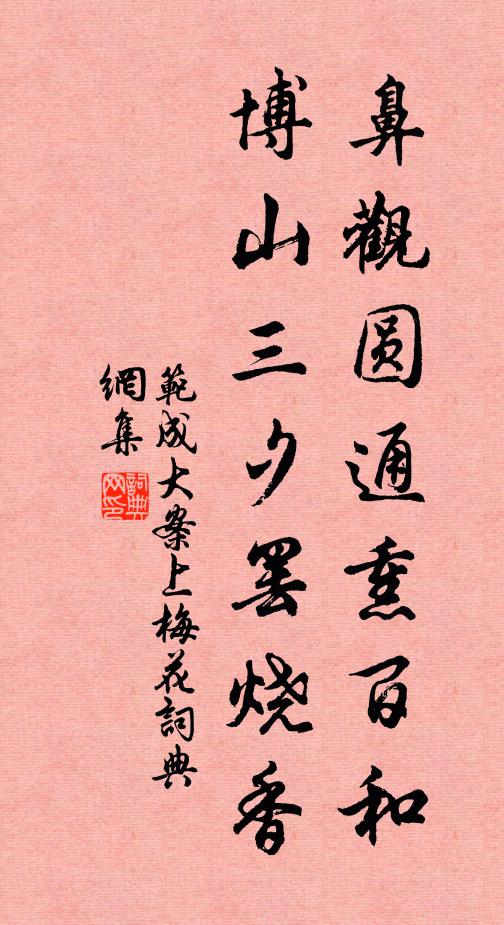 鼻觀圆通熏百和
博山三夕罢烧香
範成大案上梅花詞典
網集
詞典
网印